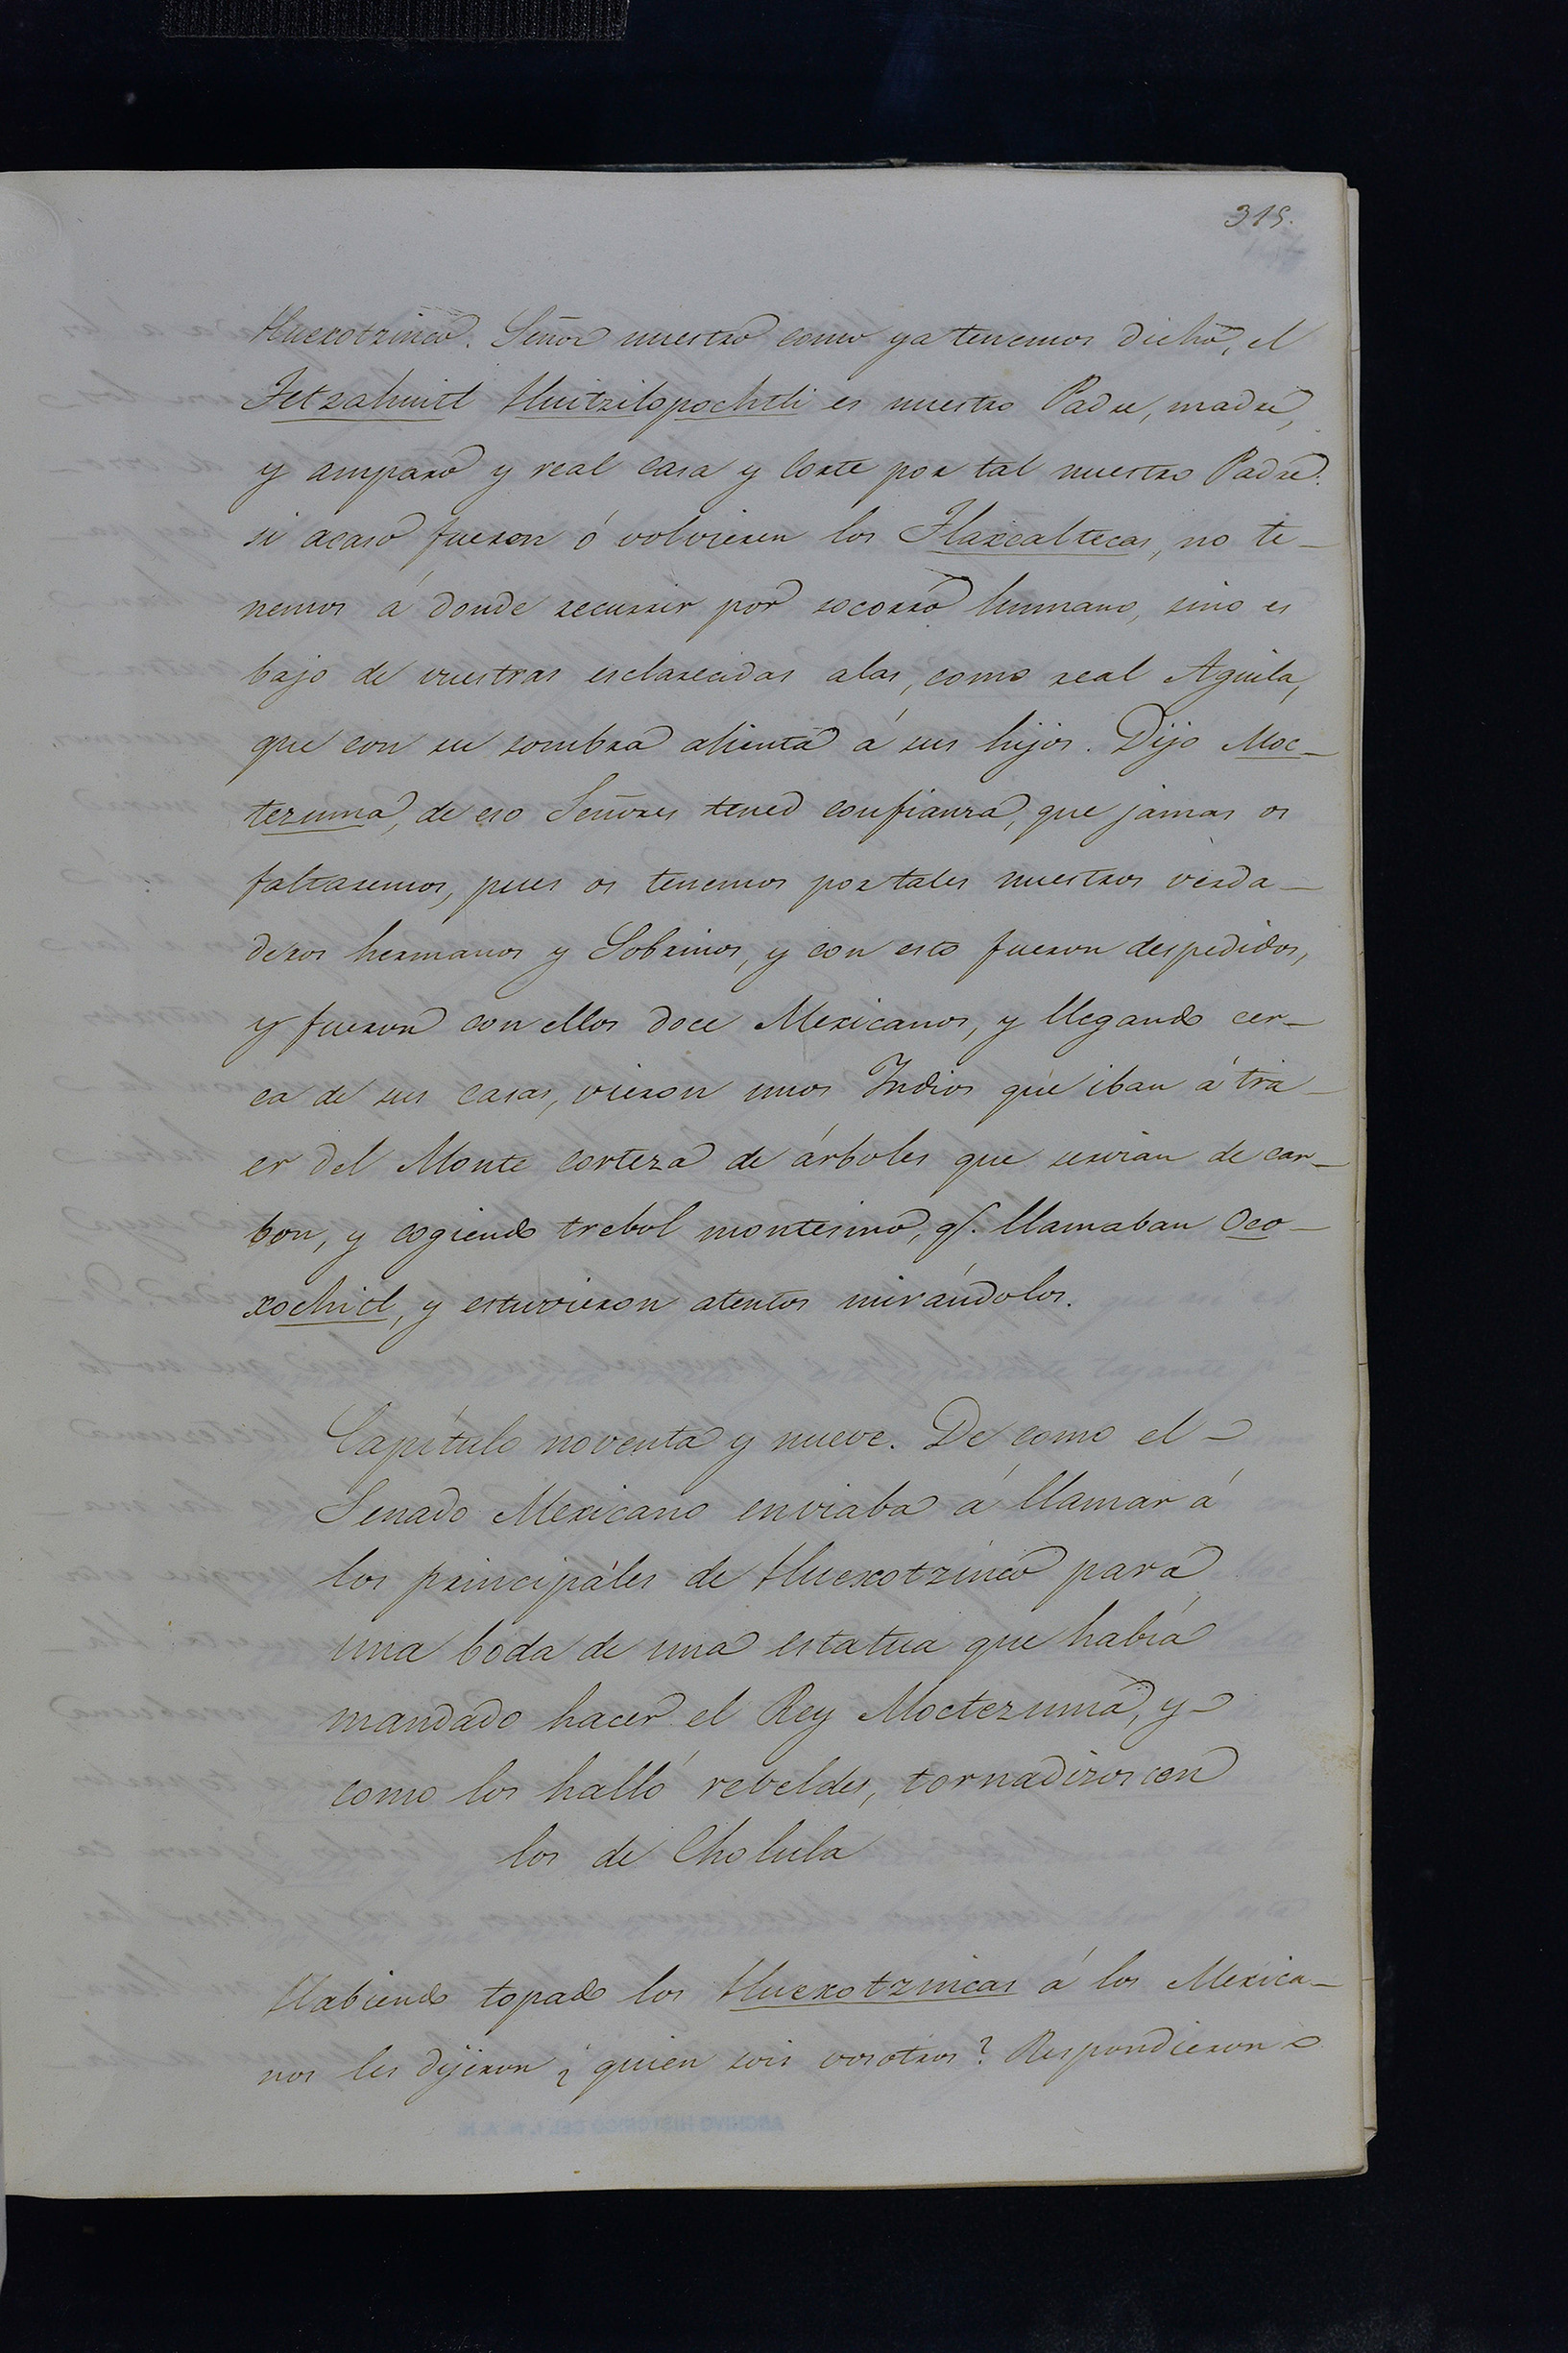 315.
Huexotzinco. Señor nuestro como ya tenemos dicho, el
Tetzahuitl Huitzilopochtli es nuestro Padre, madre,
y amparo y real casa y Corte por tal nuestro Padre.
si acaso fueren ó volvieren los Tlaxcaltecas, no te_
nemos á donde recurrir por socorro humano, sino es
bajo de vuestras esclarecidas alas, como real Aguila,
que con su sombra alienta á sus hijos. Dijo Moc_
tezuma, de eso Señores tened confianza, que jamas os
faltaremos, pues os tenemos por tales nuestros verda_
deros hermanos y Sobrinos, y con esto fueron despedidos,
y fueron con ellos doce Mexicanos, y llegando cer_
ca de sus casas, vieron unos Indios que iban á tra_
er del Monte corteza de árboles que servian de car_
bon, y cogiendo trebol montesino, q. llamaban Oco_
xochitl, y estuvieron atentos mirándolos.
Capítulo noventa y nueve. De como el
Senado Mexicano enviaba á llamar á
los principales de Huexotzinco para
una boda de una estatua que había
mandado hacer el Rey Moctezuma, y
como los halló rebeldes, tornadizos con
los de Cholula
Habiendo topado los Huexotzincas á los Mexica_
nos les dijeron ¿quien sois vosotros? Respondieron
ARCHIVO HISTORICO DEL I. N. A. H.